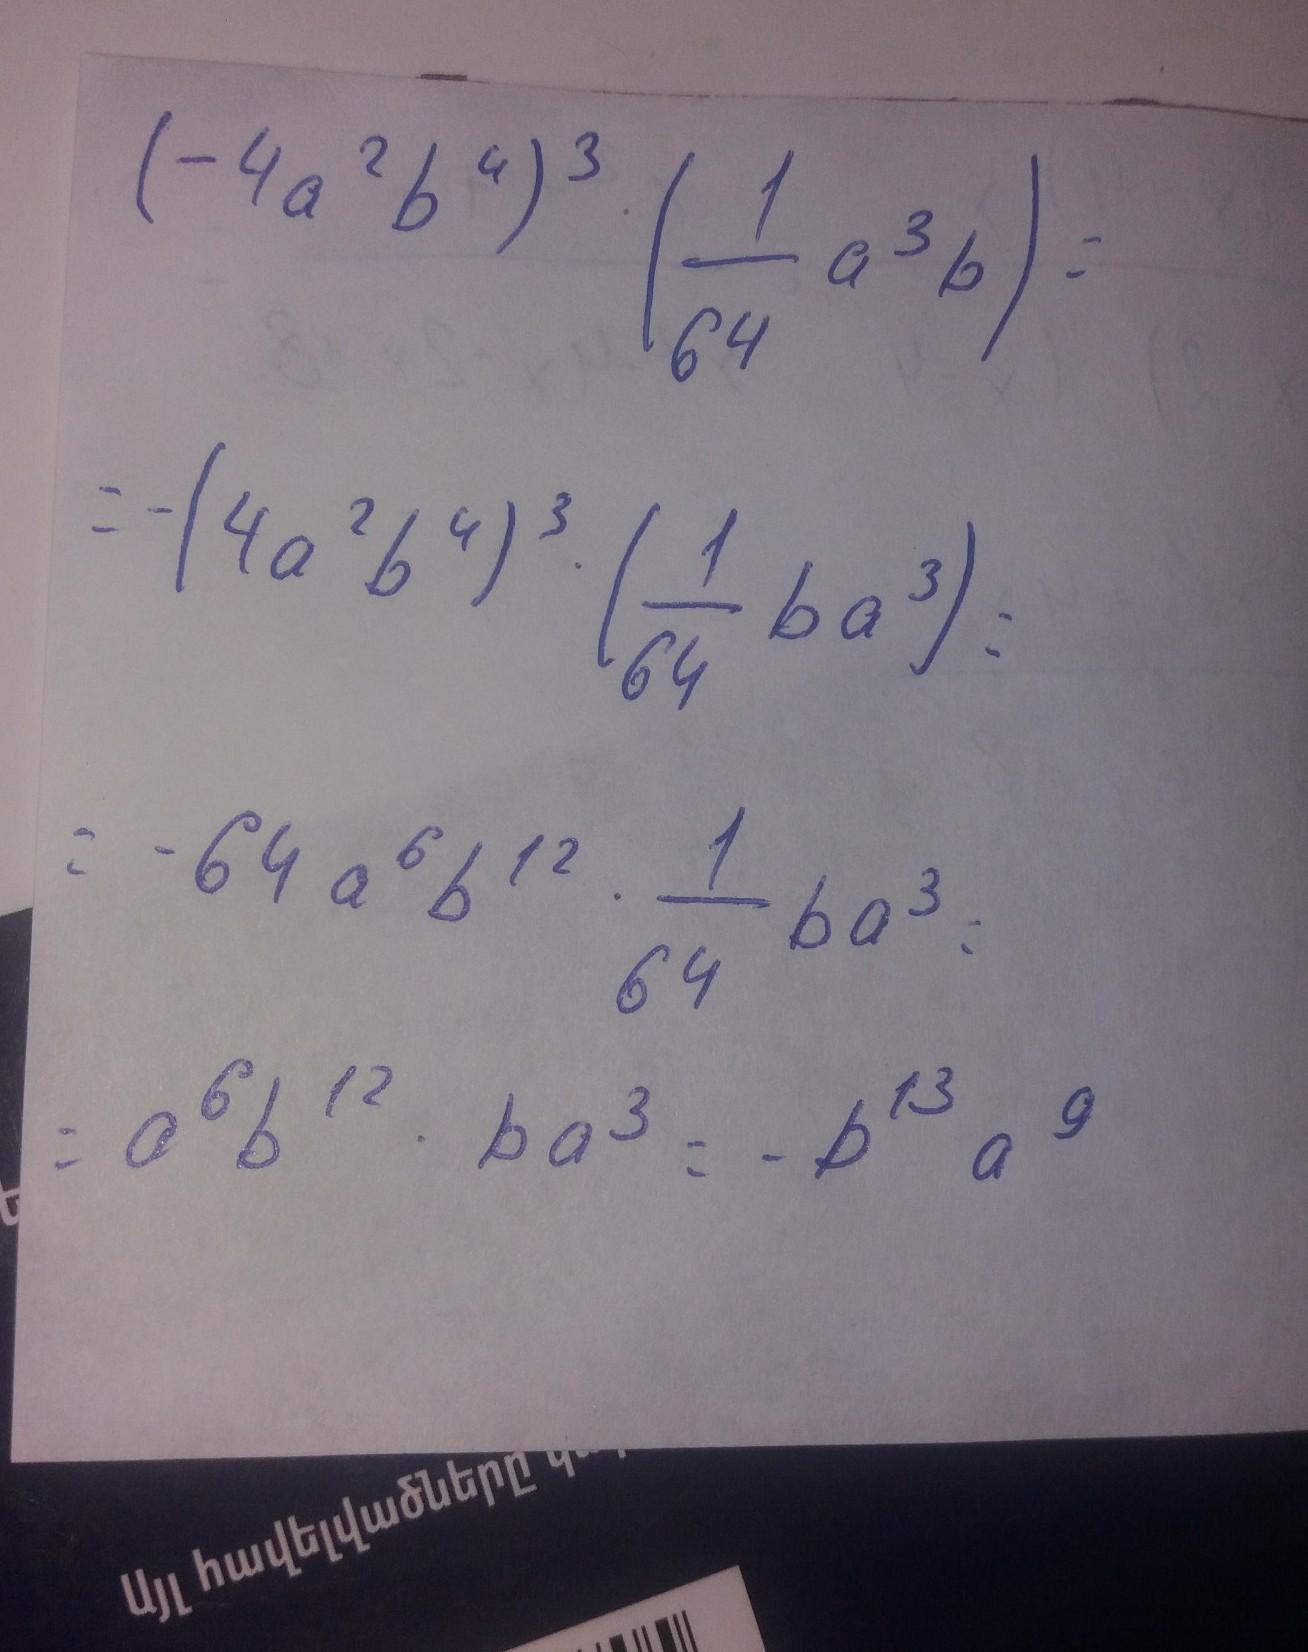 (-4a²b⁴)³ · (1/64 a³b) =
= -(4a²b⁴)³ · (1/64 ba³) =
= -64a⁶b¹² · 1/64 ba³ =
= a⁶b¹² · ba³ = -b¹³a⁹
Այլ հավելվածները